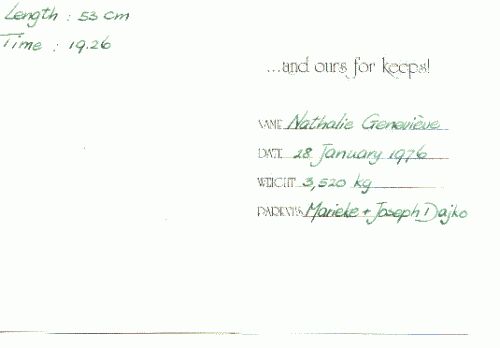 Length : 53 cm
Time : 19.26
...and ours for keeps!
NAME Nathalie Geneviève
DATE 28 January 1976
WEIGHT 3,520 kg
PARENTS Marieke + Joseph Dajko